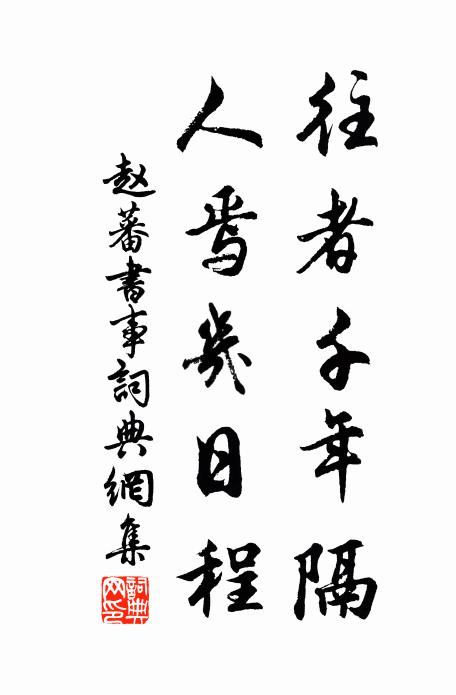 往者千年隔
人焉幾日程
赵蕃書事詞典網集
詞典网印